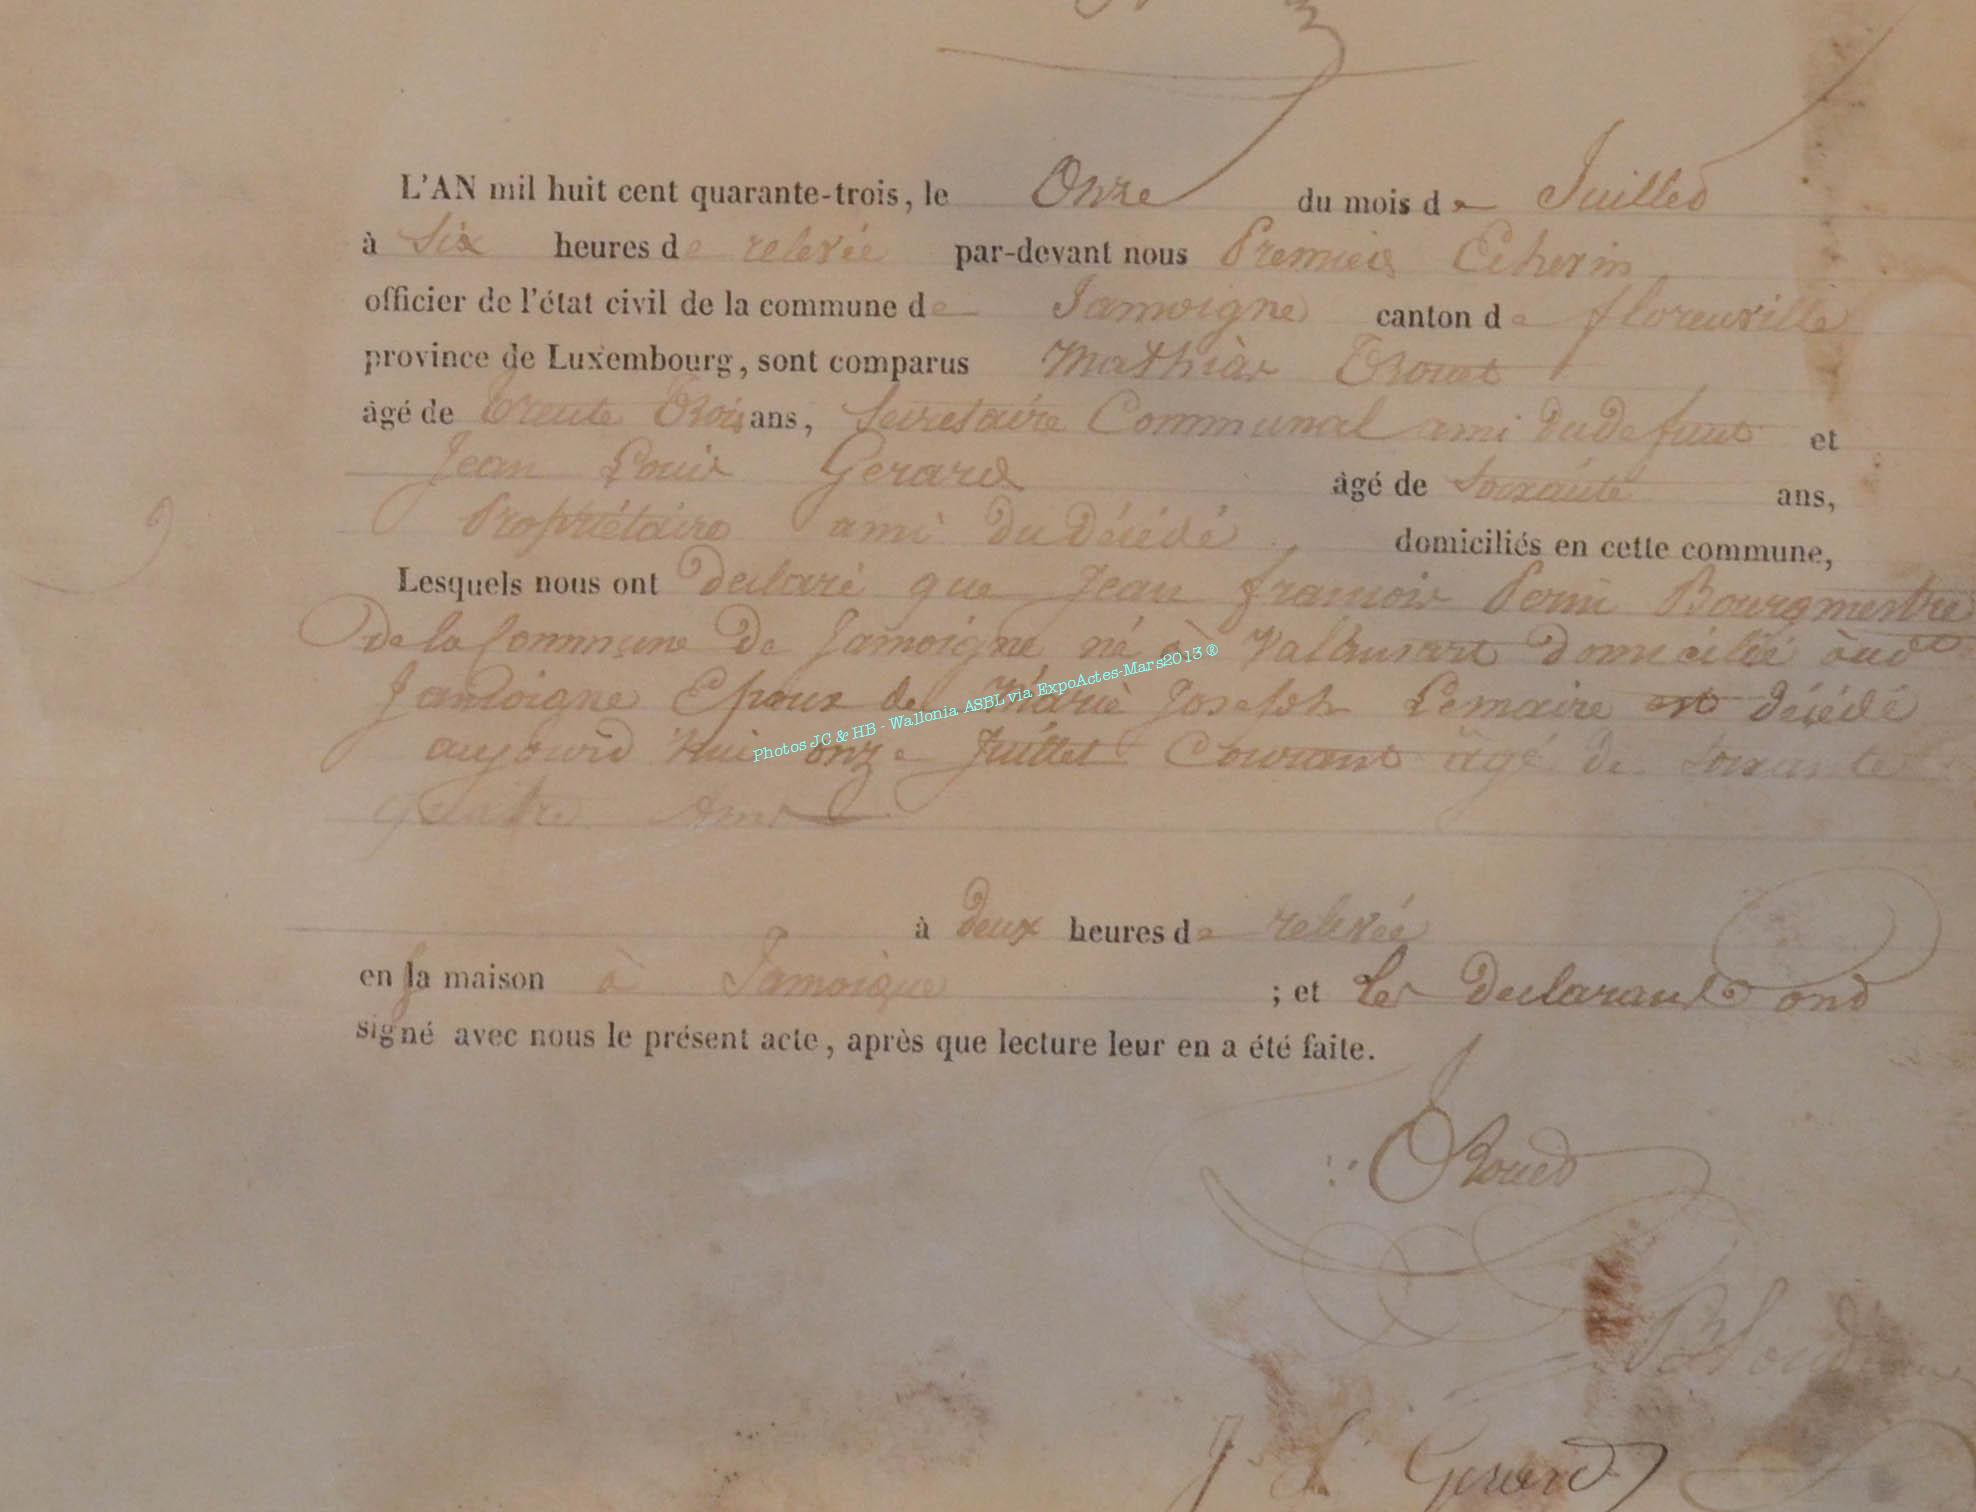 L'AN mil huit cent quarante-trois, le Onze du mois de Juillet
à Six heures de relevée par-devant nous Premier Echevin
officier de l'état civil de la commune de Jamoigne canton de florenville
province de Luxembourg, sont comparus Mathias Trouet
âgé de trente trois ans, Secretaire Communal ami du defunt et
Jean Louis Gerard âgé de soixante ans,
Propriétaire ami du décédé domiciliés en cette commune,
Lesquels nous ont declaré que Jean francois Bourgmestre
de la Commune de Jamoigne né à Valansart domicilié audt
Jamoigne Epoux de Marie Joseph Lemaire est décédé
aujourd'hui onze Juillet Courant âgé de soixante
quatre Ans
à deux heures de relevée
en sa maison à Jamoigne ; et les declarants ont
signé avec nous le présent acte, après que lecture leur en a été faite.
Trouet
J L Gerard
Photos JC & HB - Wallonia ASBL via ExpoActes-Mars2013 ®